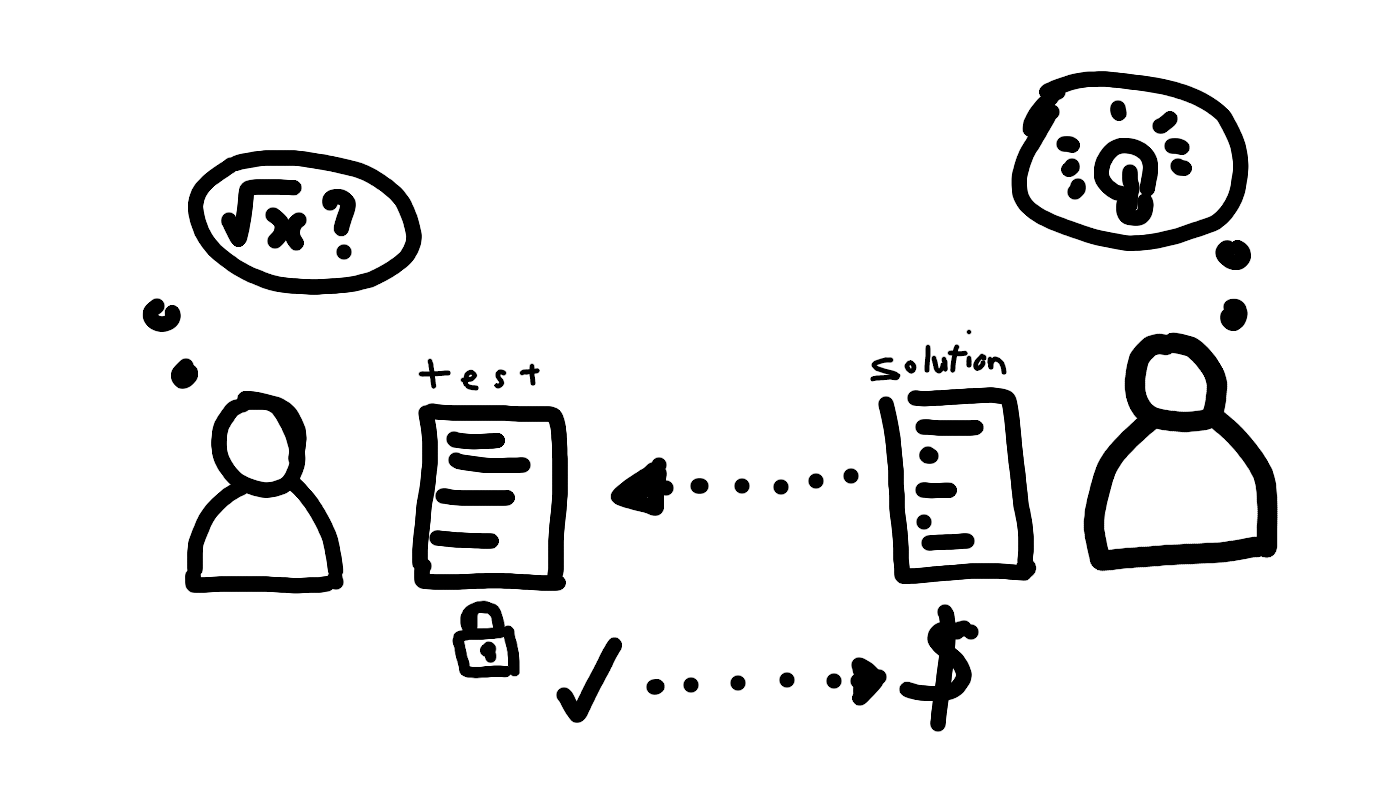 √x ?
test
solution
$